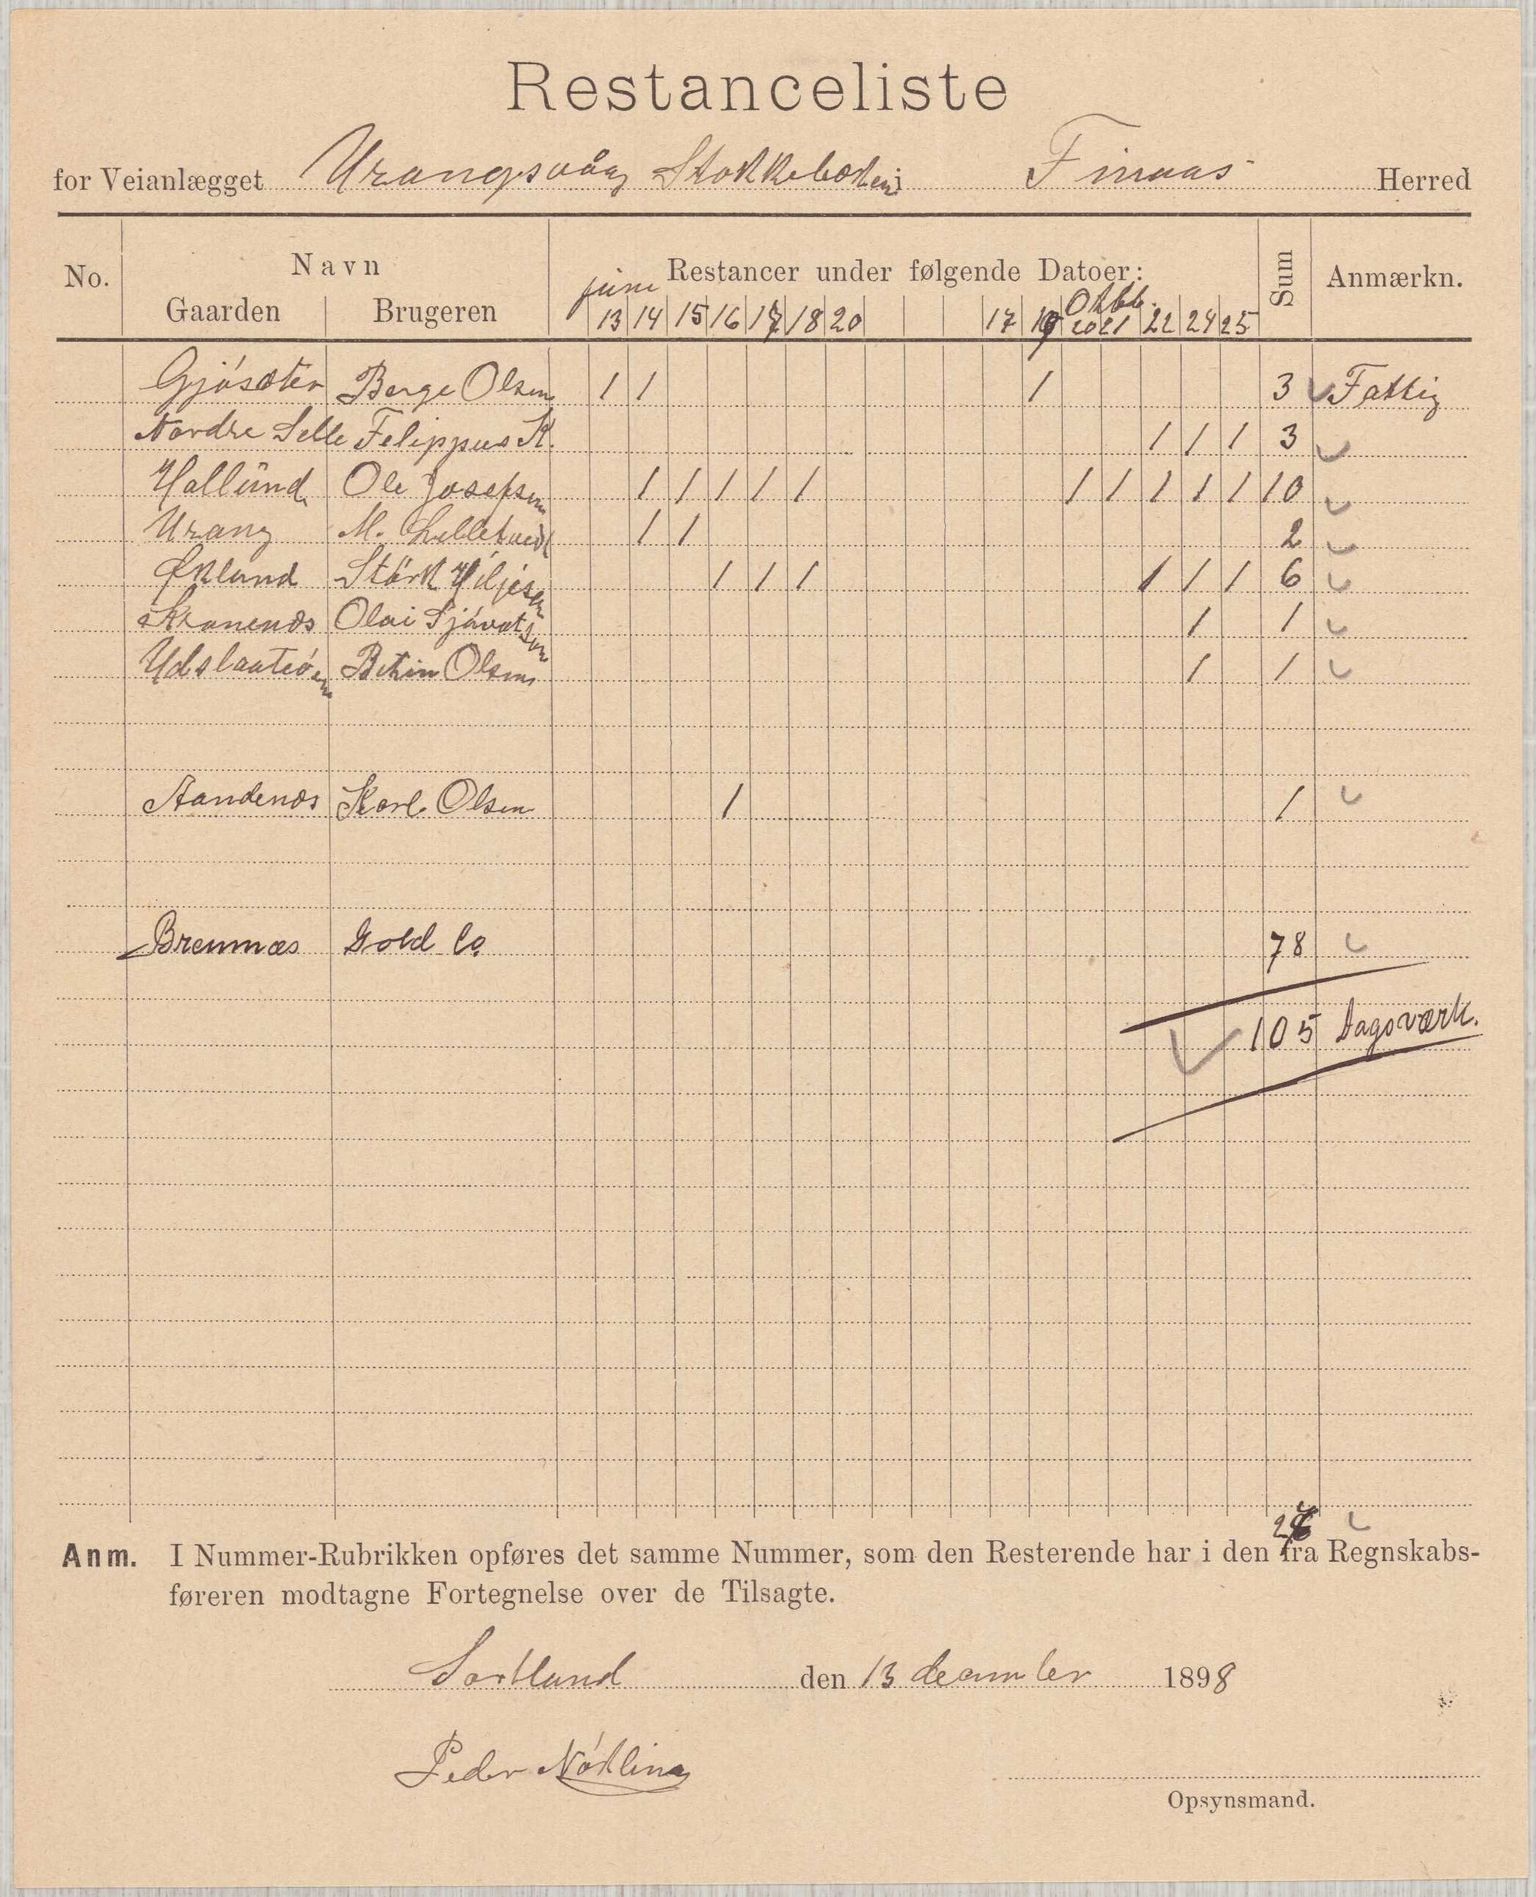 Restanceliste
for Veianlægget Urangsvåg Stokkebækken i Finaas Herred
No. Navn Restancer under følgende Datoer: Sum Anmærkn.
Gaarden Brugeren juni 13 14 15 16 17 18 20 17 19 Oktb. 20 21 22 24 25
Gjósæter Berge Olsen 1 1 1 3 Fattig
Nordre Selle Felippus K. 1 1 1 3
Hallünd Ole Josefsen 1 1 1 1 1 1 1 1 1 1 10
Urang M. Lilletvedt 1 1 2
Økland Störk Viljesen 1 1 1 1 1 1 6
Kranenæs Olai Sjóvatsen 1 1
Udslaatteóen Olsen 1 1
Aandenæs Karl Olsen 1 1
Bremnæs Gold Co. 78
105 Dagsværk.
Anm. I Nummer-Rubrikken opføres det samme Nummer, som den Resterende har i den fra Regnskabs-
føreren modtagne Fortegnelse over de Tilsagte.
Sortland den 13 december 1898
Peder Nökling
Opsynsmand.